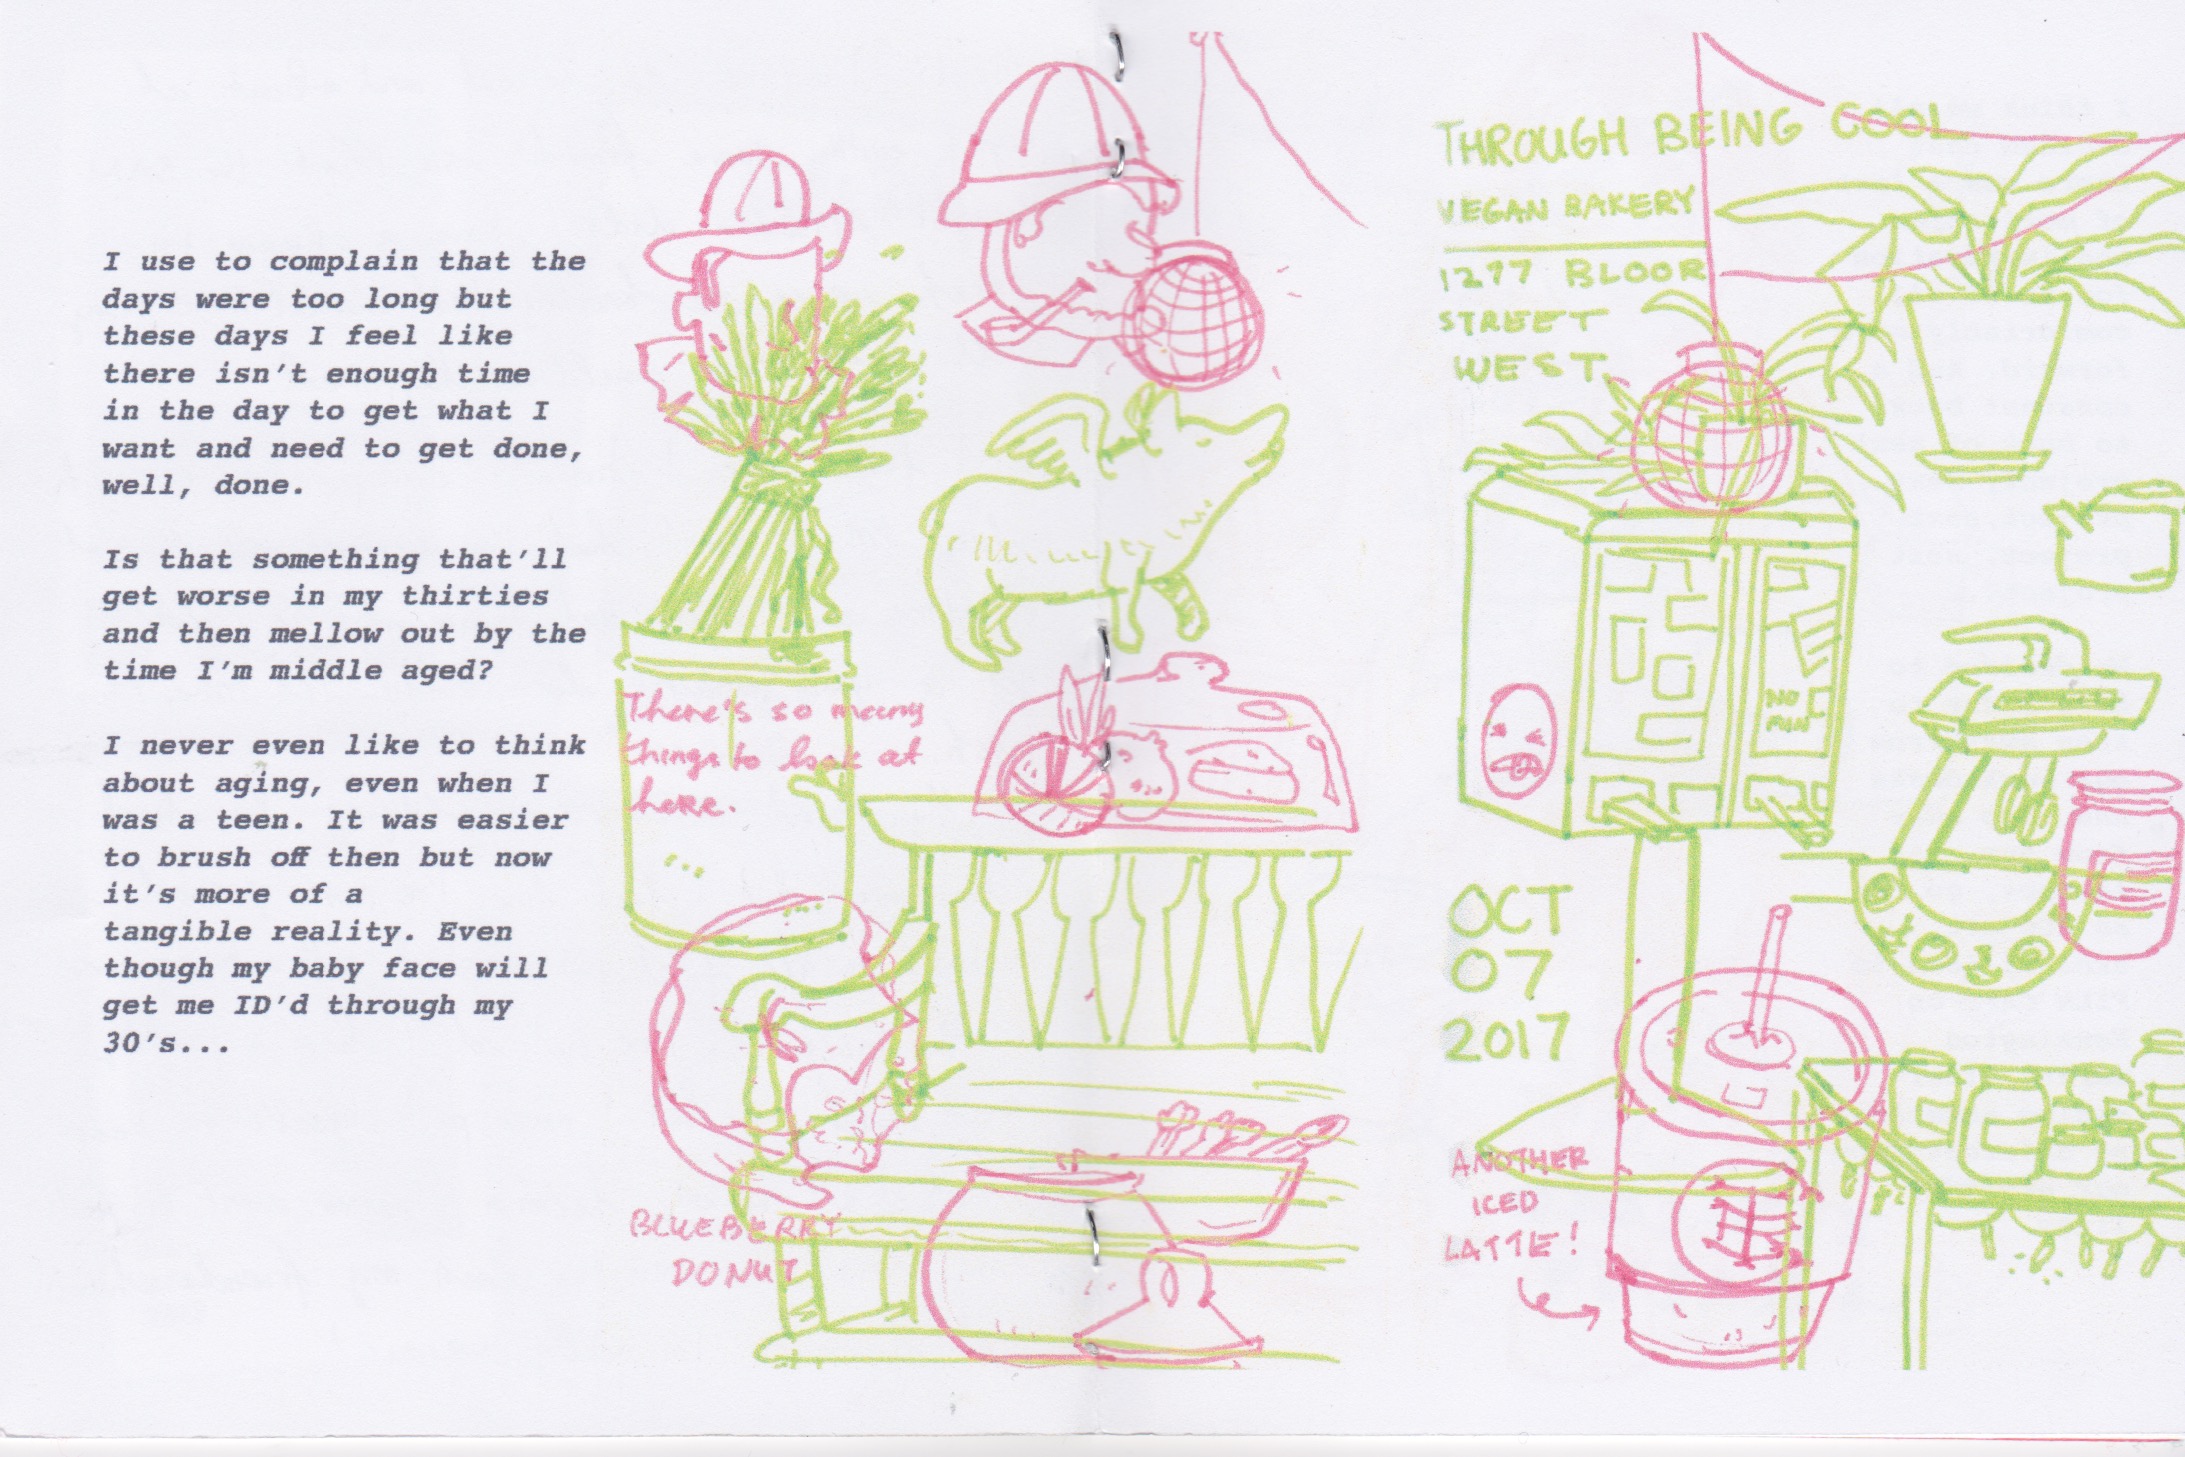 I use to complain that the
days were too long but
these days I feel like
there isn't enough time
in the day to get what I
want and need to get done,
well, done.
Is that something that'll
get worse in my thirties
and then mellow out by the
time I'm middle aged?
I never even like to think
about aging, even when I
was a teen. It was easier
to brush off then but now
it's more of a
tangible reality. Even
though my baby face will
get me ID'd through my
30's...
There's so many
things to look at
here.
...
BLUEBERRY
DONUT
THROUGH BEING COOL
VEGAN BAKERY
1277 BLOOR
STREET
WEST.
NO
OCT
07
2017
ANOTHER
ICED
LATTE!